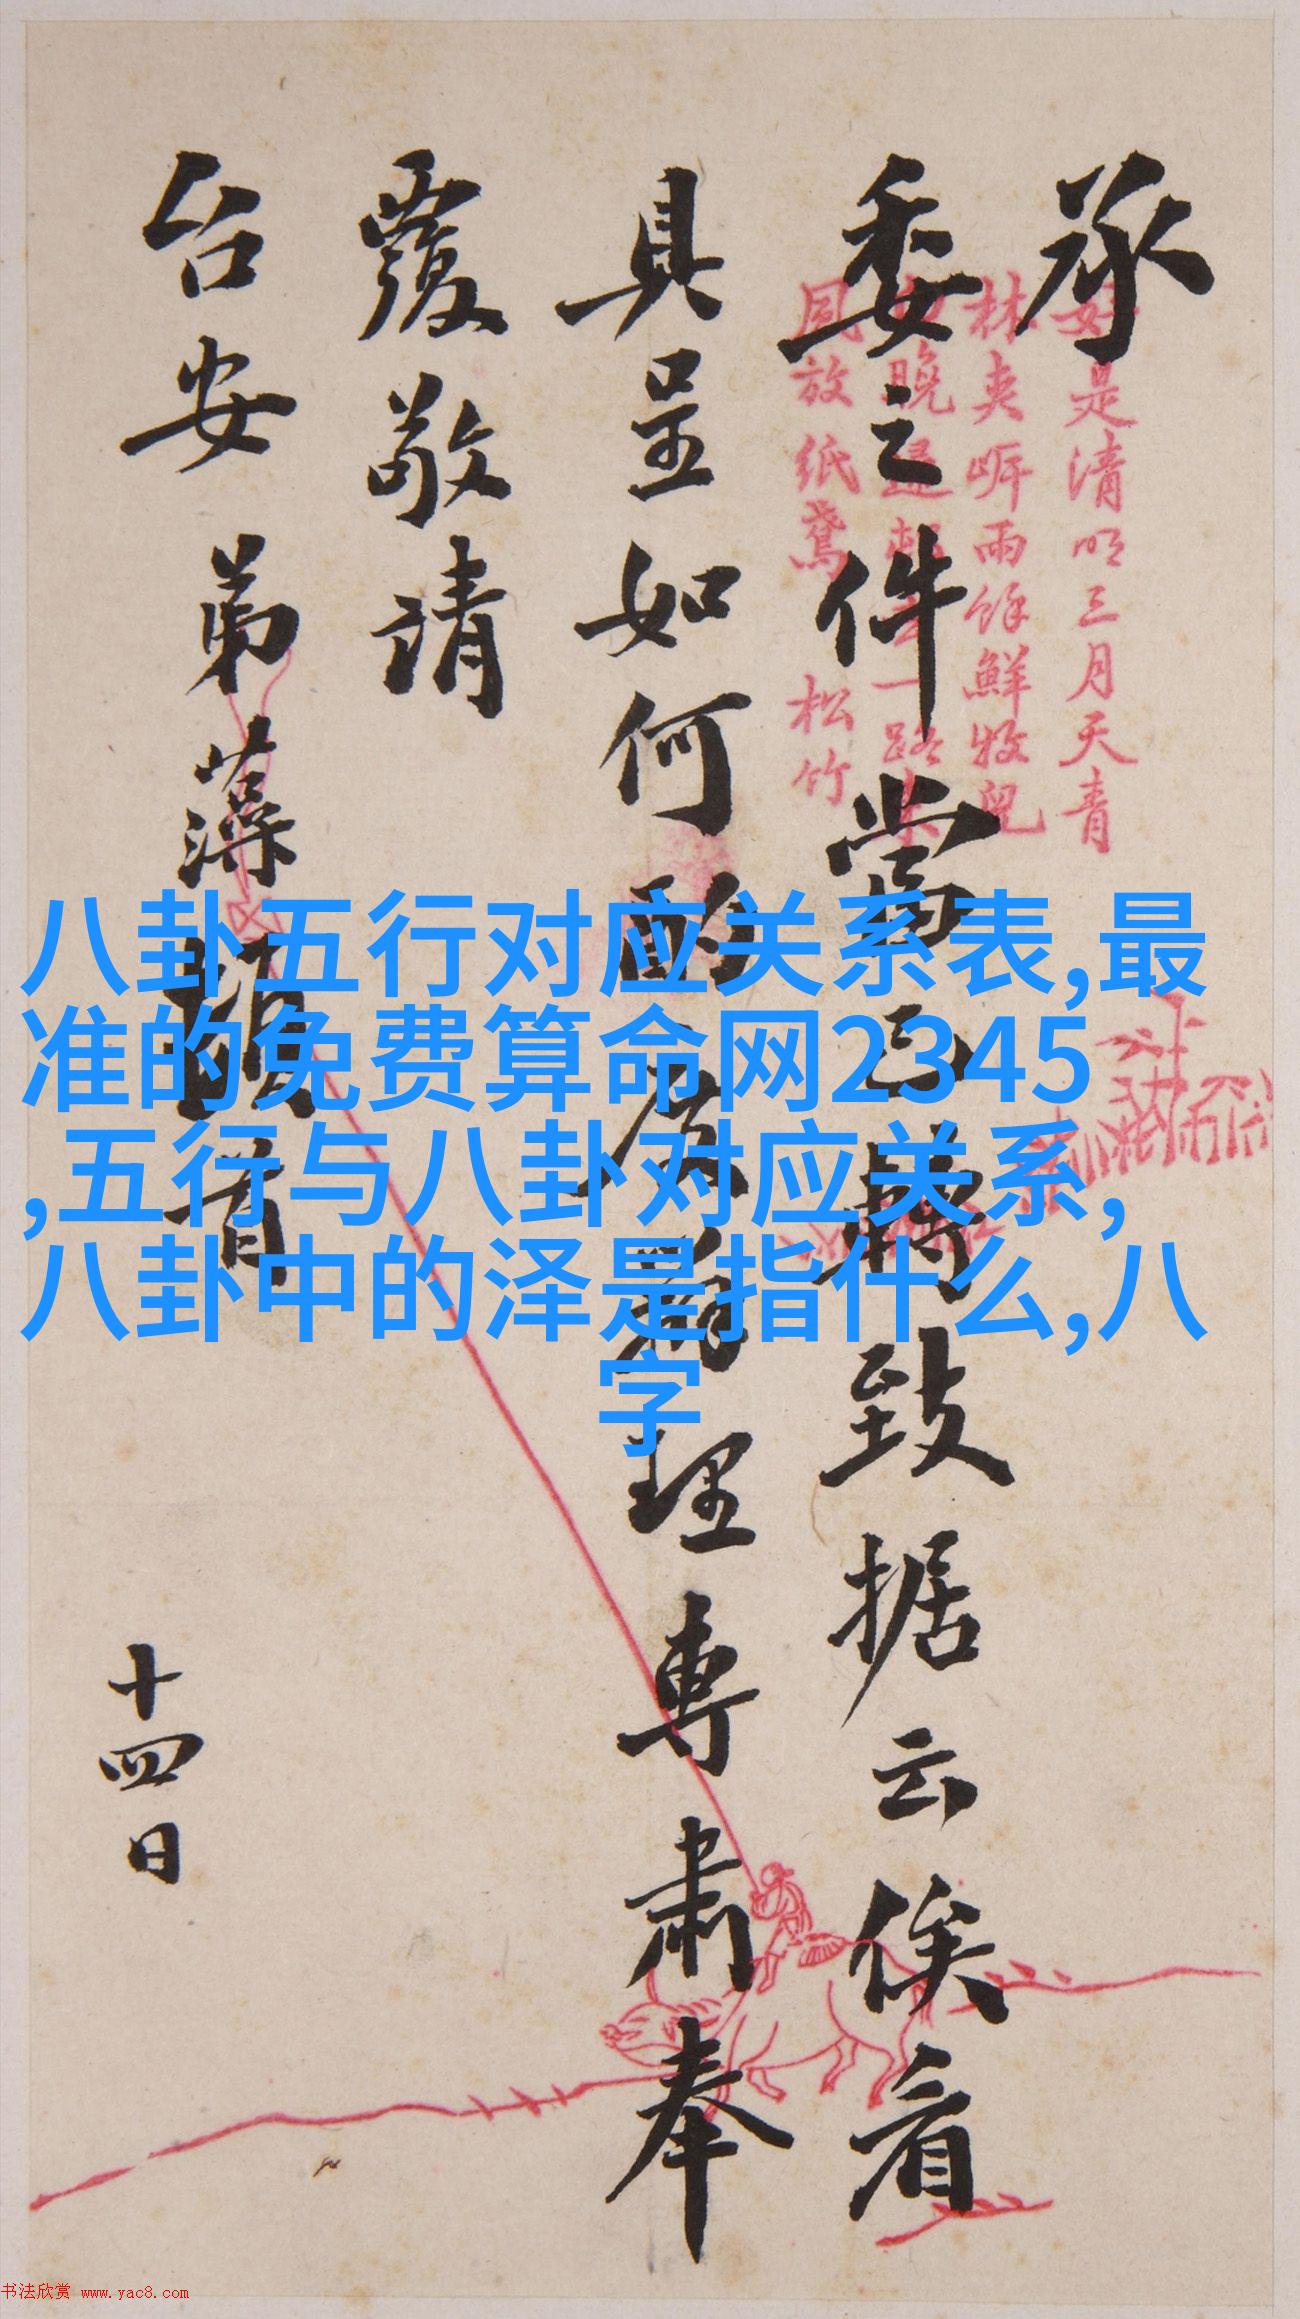 承
委之件當已轉致据云俟看
具呈如何酌度辦理專肅奉
覆敬請
台安 弟藻頓首
十四日
好是清明三月天青
林夹岍雨餘鮮牧兒
晚
同放纸鳶 松竹
八卦五行对应关系表,最
准的免费算命网2345
,五行与八卦对应关系,
八卦中的泽是指什么,八
字
书法欣赏 www.yac8.com